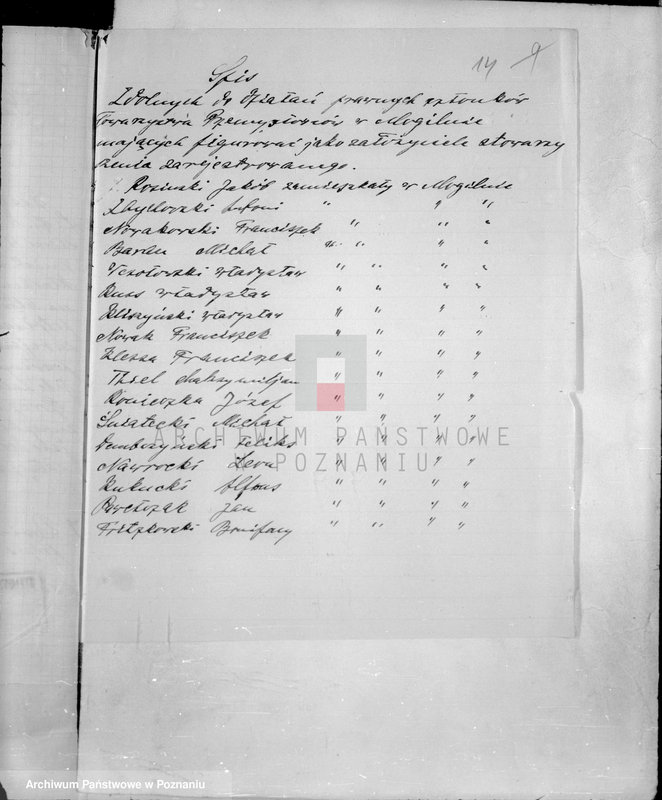 14
Spis
Zdolnych do działań prawnych członków
Towarzystwa Przemysłowców w Mogilnie
mających figurować jako założyciele stowarzy
szenia zarejestrowanego.
Rosinski Jakób zamieszkały w Mogilnie
Zbytowski Antoni " " "
Nowakowski Franciszek " " "
Michał " " " "
Wesołowski Władysław " " " "
Russ Władysław " " " "
Władysław " " " "
Nowak Franciszek " " " "
Franciszek " " " "
Thiel Maksymiljan " " " "
Konieczka Józef " " " "
Świątecki Michał " " " "
Dembczyński Feliks " " " "
Nawrocki Leon " " " "
Kukucki Alfons " " " "
Jan " " " "
Fritzkowski Bonifacy " " " "
ARCHIWUM PAŃSTWOWE
W POZNANIU
Archiwum Państwowe w Poznaniu